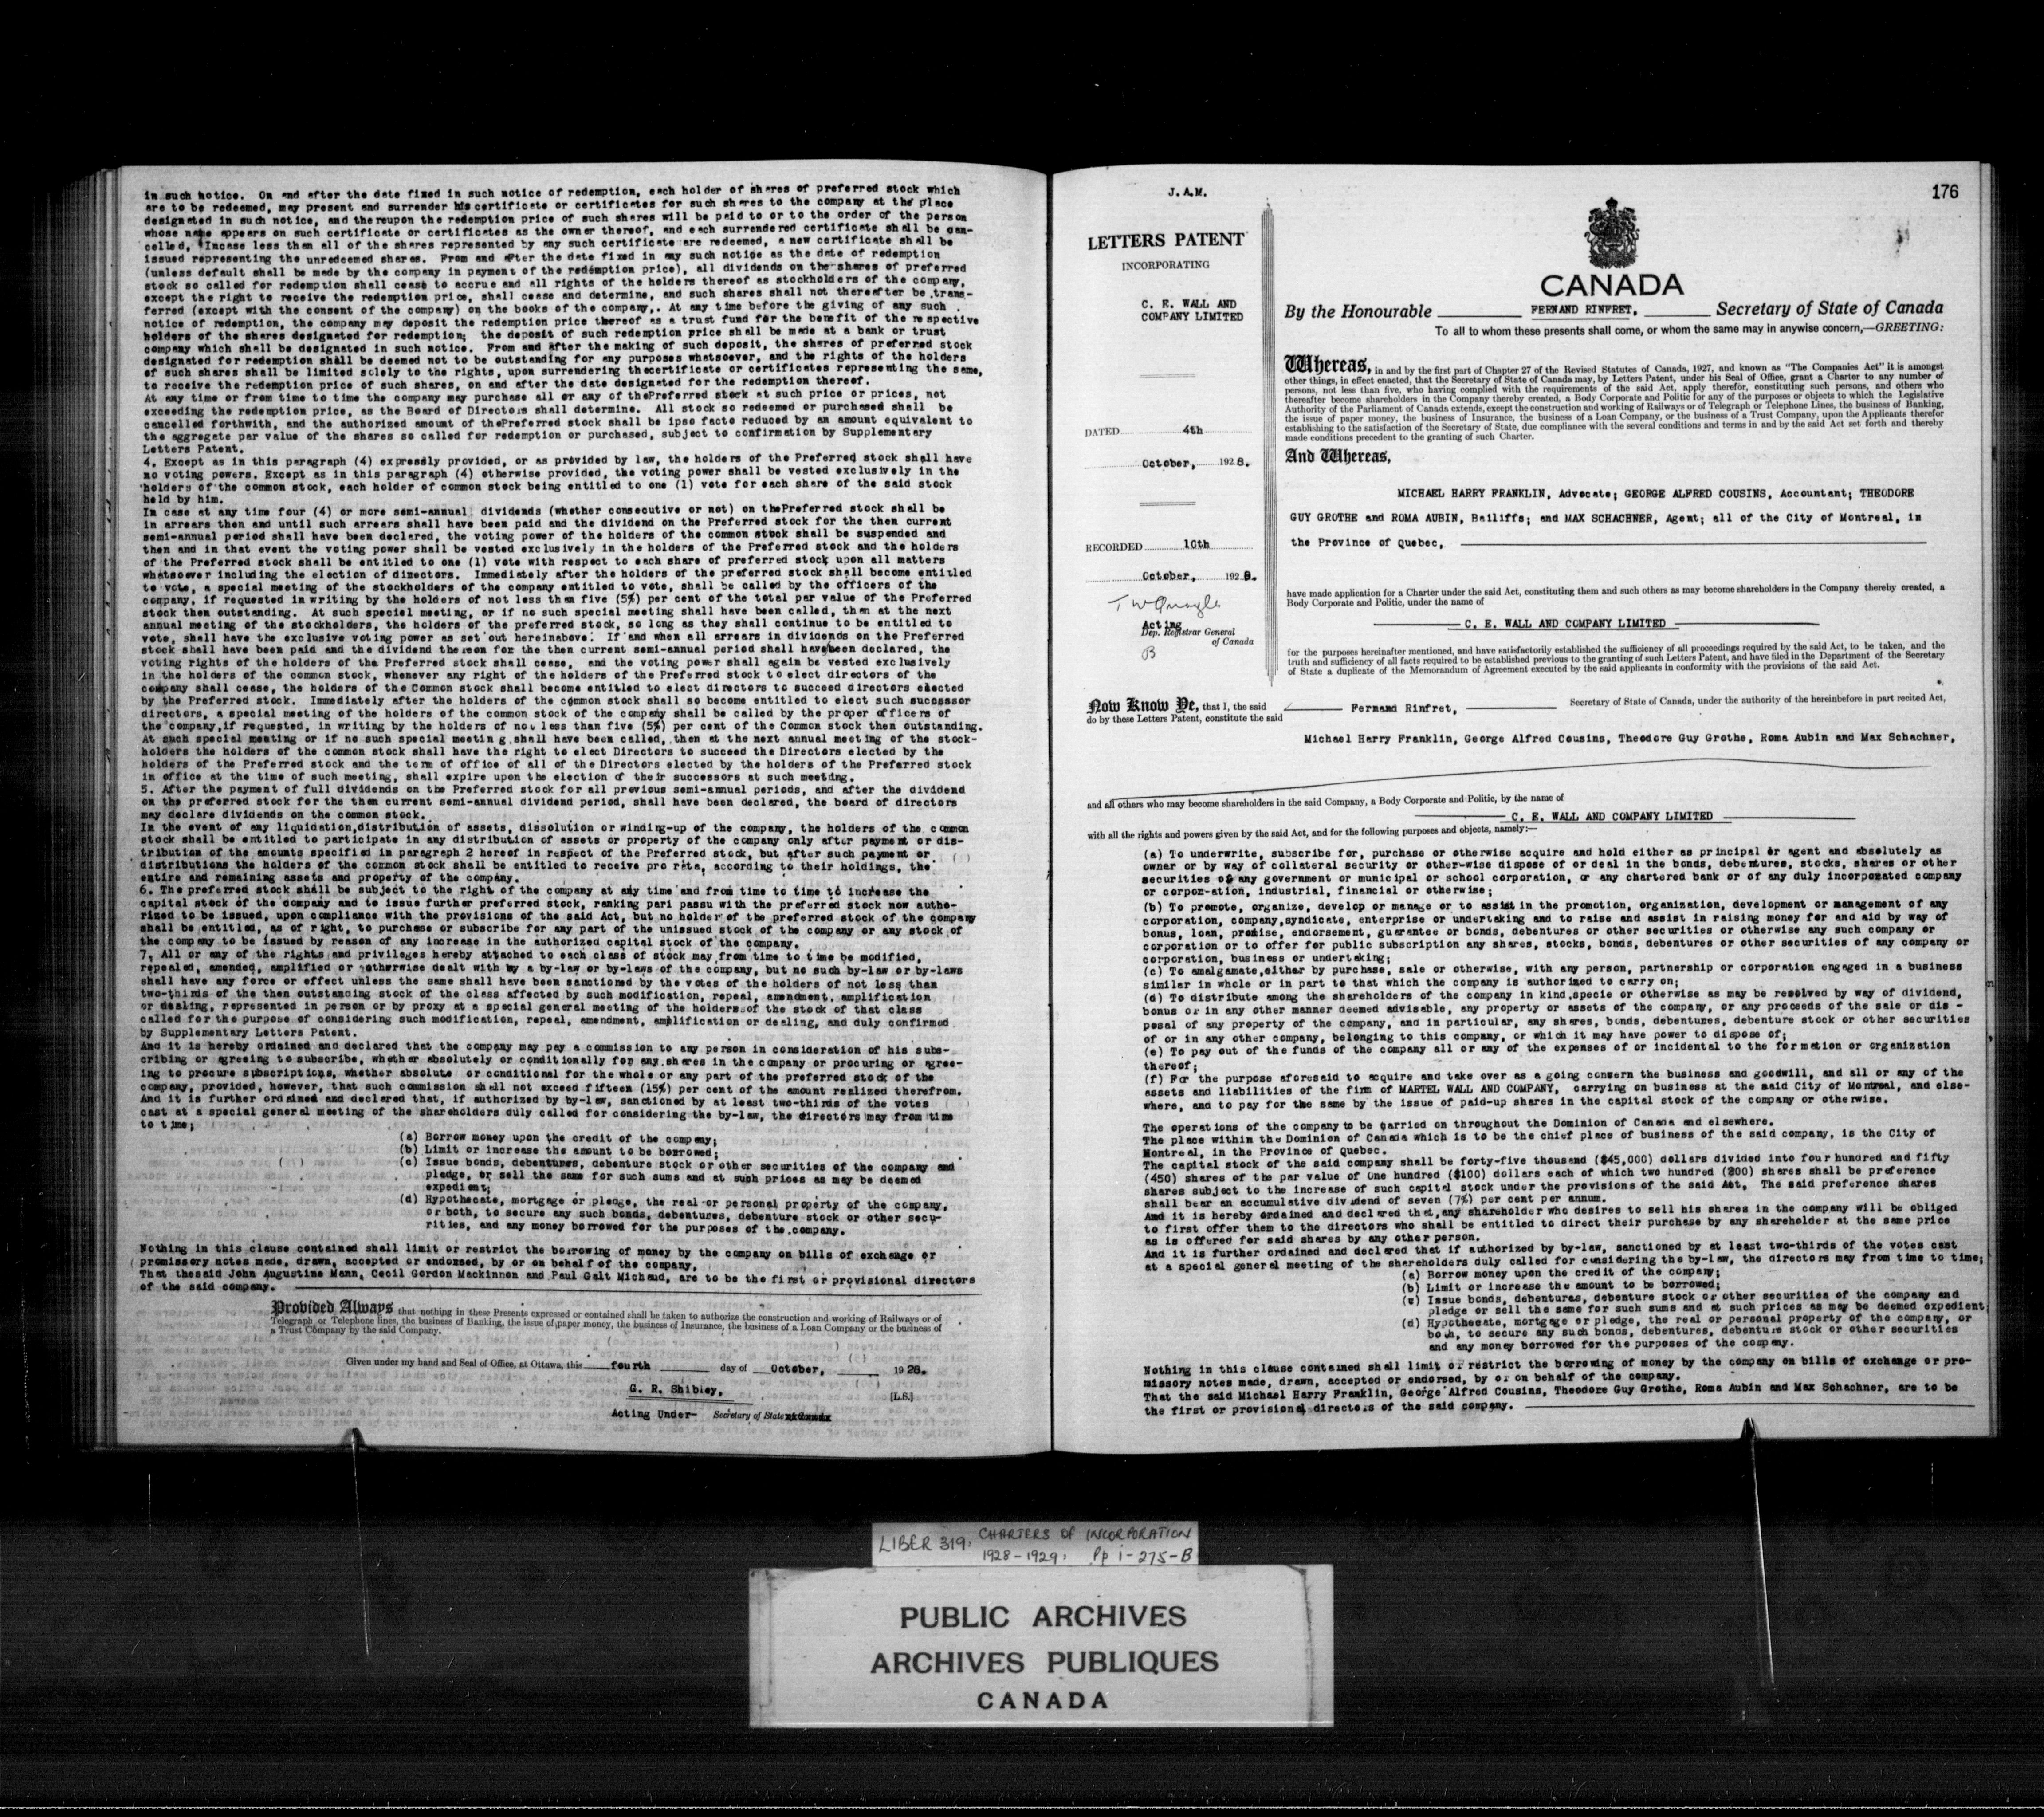 in such notice. On and after the date fixed in such notice of redemption, each holder of shares of preferred stock which
are to be redeemed, may present and surrender his certificate or certificates for such shares to the company at the place
designated in such notice, and thereupon the redemption price of such shares will be paid to or to the order of the person
whose name appears on such certificate or certificates as the owner thereof, and each surrendered certificate shall be can-
celled, Incase less than all of the shares represented by any such certificate are redeemed, a new certificate shall be
issued representing the unredeemed shares. From and after the date fixed in any such notice as the date of redemption
(unless default shall be made by the company in payment of the redemption price), all dividends on the shares of preferred
stock so called for redemption shall cease to accrue and all rights of the holders thereof as stockholders of the company,
except the right to receive the redemption price, shall cease and determine, and such shares shall not thereafter be trans-
ferred (except with the consent of the company) on the books of the company,. At any time before the giving of any such
notice of redemption, the company may deposit the redemption price thereof as a trust fund for the benefit of the respective
holders of the shares designated for redemption; the deposit of such redemption price shall be made at a bank or trust
company which shall be designated in such notice. From and after the making of such deposit, the shares of preferred stock
designated for redemption shall be deemed not to be outstanding for any purposes whatsoever, and the rights of the holders
of such shares shall be limited solely to the rights, upon surrendering thecertificate or certificates representing the same,
to receive the redemption price of such shares, on and after the date designated for the redemption thereof.
At any time or from time to time the company may purchase all or any of thePreferred stock at such price or prices, not
exceeding the redemption price, as the Board of Directors shall determine. All stock so redeemed or purchased shall be
cancelled forthwith, and the authorized amount of thePreferred stock shall be ipso facto reduced by an amount equivalent to
the aggregate par value of the shares so called for redemption or purchased, subject to confirmation by Supplementary
Letters Patent.
4. Except as in this paragraph (4) expressly provided, or as provided by law, the holders of the Preferred stock shall have
no voting powers. Except as in this paragraph (4) otherwise provided, the voting power shall be vested exclusively in the
holders of the common stock, each holder of common stock being entitled to one (1) vote for each share of the said stock
held by him.
In case at any time four (4) or more semi-annual dividends (whether consecutive or not) on thePreferred stock shall be
in arrears then and until such arrears shall have been paid and the dividend on the Preferred stock for the then current
semi-annual period shall have been declared, the voting power of the holders of the common stock shall be suspended and
then and in that event the voting power shall be vested exclusively in the holders of the Preferred stock and the holders
of the Preferred stock shall be entitled to one (1) vote with respect to each share of preferred stock upon all matters
whatsoever including the election of directors. Immediately after the holders of the preferred stock shall become entitled
to vote, a special meeting of the stockholders of the company entitled to vote, shall be called by the officers of the
company, if requested in writing by the holders of not less than five (5%) per cent of the total par value of the Preferred
stock then outstanding. At such special meeting, or if no such special meeting shall have been called, then at the next
annual meeting of the stockholders, the holders of the preferred stock, so long as they shall continue to be entitled to
vote, shall have the exclusive voting power as set out hereinabove. If and when all arrears in dividends on the Preferred
stock shall have been paid and the dividend thereon for the then current semi-annual period shall havebeen declared, the
voting rights of the holders of the Preferred stock shall cease, and the voting power shall again be vested exclusively
in the holders of the common stock, whenever any right of the holders of the Preferred stock to elect directors of the
company shall cease, the holders of the Common stock shall become entitled to elect directors to succeed directors elected
by the Preferred stock. Immediately after the holders of the common stock shall so become entitled to elect such successor
directors, a special meeting of the holders of the common stock of the company shall be called by the proper officers of
the company,if requested, in writing by the holders of not less than five (5%) per cent of the Common stock then outstanding.
At such special meeting or if no such special meetin g shall have been called, then at the next annual meeting of the stock-
holders the holders of the common stock shall have the right to elect Directors to succeed the Directors elected by the
holders of the Preferred stock and the term of office of all of the Directors elected by the holders of the Preferred stock
in office at the time of such meeting, shall expire upon the election of their successors at such meeting.
5. After the payment of full dividends on the Preferred stock for all previous semi-annual periods, and after the dividend
on the preferred stock for the then current semi-annual dividend period, shall have been declared, the board of directors
may declare dividends on the common stock.
In the event of any liquidation,distribution of assets, dissolution or winding-up of the company, the holders of the common
stock shall be entitled to participate in any distribution of assets or property of the company only after payment or dis-
tribution of the amounts specified in paragraph 2 hereof in respect of the Preferred stock, but after such payment or
distributions the holders of the common stock shall be entitled to receive pro rata, according to their holdings, the
entire and remaining assets and property of the company.
6. The preferred stock shall be subject to the right of the company at any time and from time to time to increase the
capital stock of the company and to issue further preferred stock, ranking pari passu with the preferred stock now autho-
rized to be issued, upon compliance with the provisions of the said Act, but no holder of the preferred stock of the company
shall be entitled, as of right, to purchase or subscribe for any part of the unissued stock of the company or any stock of
the company to be issued by reason of any increase in the authorized capital stock of the company.
7. All or any of the rights and privileges hereby attached to each class of stock may from time to time be modified,
repealed, amended, amplified or otherwise dealt with by a by-law or by-laws of the company, but no such by-law or by-laws
shall have any force or effect unless the same shall have been sanctioned by the votes of the holders of not less than
two-thirds of the then outstanding stock of the class affected by such modification, repeal, amendment, amplification
or dealing, represented in person or by proxy at a special general meeting of the holders of the stock of that class
called for the purpose of considering such modification, repeal, amendment, amplification or dealing, and duly confirmed
by Supplementary Letters Patent.
And it is hereby ordained and declared that the company may pay a commission to any person in consideration of his subs-
cribing or agreeing to subscribe, whether absolutely or conditionally for any shares in the company or procuring or agree-
ing to procure subscriptions, whether absolute or conditional for the whole or any part of the preferred stock of the
company, provided, however, that such commission shall not exceed fifteen (15%) per cent of the amount realized therefrom.
And it is further ordained and declared that, if authorized by by-law, sanctioned by at least two-thirds of the votes
cast at a special general meeting of the shareholders duly called for considering the by-law, the directors may from time
to time;
(a) Borrow money upon the credit of the company;
(b) Limit or increase the amount to be borrowed;
(c) Issue bonds, debentures, debenture stock or other securities of the company and
pledge, or sell the same for such sums and at such prices as may be deemed
expedient;
(d) Hypothecate, mortgage or pledge, the real or personal property of the company,
or both, to secure any such bonds, debentures, debenture stock or other secu-
rities, and any money borrowed for the purposes of the company.
Nothing in this clause contained shall limit or restrict the borrowing of money by the company on bills of exchange or
promissory notes made, drawn, accepted or endorsed, by or on behalf of the company,
That thesaid John Augustine Mann, Cecil Gordon Mackinnon and Paul Galt Michaud, are to be the first or provisional directors
of the said company.
Provided Always that nothing in these Presents expressed or contained shall be taken to authorize the construction and working of Railways or of
Telegraph or Telephone lines, the business of Banking, the issue of paper money, the business of Insurance, the business of a Loan Company or the business of
a Trust Company by the said Company.
Given under my hand and Seal of Office, at Ottawa, this fourth day of October, 1928.
G. R. Shibley, [L.S.]
Acting Under- Secretary of State
J. A. M.
176
LETTERS PATENT
INCORPORATING
C. E. WALL AND
COMPANY LIMITED
DATED 4th
October, 1928.
RECORDED 10th
October, 1928.
Acting
Dep. Registrar General
of Canada
B
CANADA
By the Honourable FERNAND RINFRET, Secretary of State of Canada
To all to whom these presents shall come, or whom the same may in anywise concern,—GREETING:
Whereas, in and by the first part of Chapter 27 of the Revised Statutes of Canada, 1927, and known as "The Companies Act" it is amongst
other things, in effect enacted, that the Secretary of State of Canada may, by Letters Patent, under his Seal of Office, grant a Charter to any number of
persons, not less than five, who having complied with the requirements of the said Act, apply therefor, constituting such persons, and others who
thereafter become shareholders in the Company thereby created, a Body Corporate and Politic for any of the purposes or objects to which the Legislative
Authority of the Parliament of Canada extends, except the construction and working of Railways or of Telegraph or Telephone Lines, the business of Banking,
the issue of paper money, the business of Insurance, the business of a Loan Company, or the business of a Trust Company, upon the Applicants therefor
establishing to the satisfaction of the Secretary of State, due compliance with the several conditions and terms in and by the said Act set forth and thereby
made conditions precedent to the granting of such Charter.
And Whereas,
MICHAEL HARRY FRANKLIN, Advocate; GEORGE ALFRED COUSINS, Accountant; THEODORE
GUY GROTHE and ROMA AUBIN, Bailiffs; and MAX SCHACHNER, Agent; all of the City of Montreal, in
the Province of Quebec,
have made application for a Charter under the said Act, constituting them and such others as may become shareholders in the Company thereby created, a
Body Corporate and Politic, under the name of
C. E. WALL AND COMPANY LIMITED
for the purposes hereinafter mentioned, and have satisfactorily established the sufficiency of all proceedings required by the said Act, to be taken, and the
truth and sufficiency of all facts required to be established previous to the granting of such Letters Patent, and have filed in the Department of the Secretary
of State a duplicate of the Memorandum of Agreement executed by the said applicants in conformity with the provisions of the said Act.
Now Know Ye, that I, the said Fernand Rinfret, Secretary of State of Canada, under the authority of the hereinbefore in part recited Act,
do by these Letters Patent, constitute the said
Michael Harry Franklin, George Alfred Cousins, Theodore Guy Grothe, Roma Aubin and Max Schachner,
and all others who may become shareholders in the said Company, a Body Corporate and Politic, by the name of
C. E. WALL AND COMPANY LIMITED
with all the rights and powers given by the said Act, and for the following purposes and objects, namely:—
(a) To underwrite, subscribe for, purchase or otherwise acquire and hold either as principal or agent and absolutely as
owner or by way of collateral security or other-wise dispose of or deal in the bonds, debentures, stocks, shares or other
securities of any government or municipal or school corporation, or any chartered bank or of any duly incorporated company
or corpor-ation, industrial, financial or otherwise;
(b) To promote, organize, develop or manage or to assist in the promotion, organization, development or management of any
corporation, company,syndicate, enterprise or undertaking and to raise and assist in raising money for and aid by way of
bonus, loan, promise, endorsement, guarantee or bonds, debentures or other securities or otherwise any such company or
corporation or to offer for public subscription any shares, stocks, bonds, debentures or other securities of any company or
corporation, business or undertaking;
(c) To amalgamate,either by purchase, sale or otherwise, with any person, partnership or corporation engaged in a business
similar in whole or in part to that which the company is authorized to carry on;
(d) To distribute among the shareholders of the company in kind,specie or otherwise as may be resolved by way of dividend,
bonus or in any other manner deemed advisable, any property or assets of the company, or any proceeds of the sale or dis -
posal of any property of the company, and in particular, any shares, bonds, debentures, debenture stock or other securities
of or in any other company, belonging to this company, or which it may have power to dispose of;
(e) To pay out of the funds of the company all or any of the expenses of or incidental to the formation or organization
thereof;
(f) For the purpose aforesaid to acquire and take over as a going concern the business and goodwill, and all or any of the
assets and liabilities of the firm of MARTEL WALL AND COMPANY, carrying on business at the said City of Montreal, and else-
where, and to pay for the same by the issue of paid-up shares in the capital stock of the company or otherwise.
The operations of the company to be carried on throughout the Dominion of Canada and elsewhere.
The place within the Dominion of Canada which is to be the chief place of business of the said company, is the City of
Montreal, in the Province of Quebec.
The capital stock of the said company shall be forty-five thousand ($45,000) dollars divided into four hundred and fifty
(450) shares of the par value of One hundred ($100) dollars each of which two hundred (200) shares shall be preference
shares subject to the increase of such capital stock under the provisions of the said Act. The said preference shares
shall bear an accumulative dividend of seven (7%) per cent per annum.
And it is hereby ordained and declared that,any shareholder who desires to sell his shares in the company will be obliged
to first offer them to the directors who shall be entitled to direct their purchase by any shareholder at the same price
as is offered for said shares by any other person.
And it is further ordained and declared that if authorized by by-law, sanctioned by at least two-thirds of the votes cast
at a special general meeting of the shareholders duly called for considering the by-law, the directors may from time to time;
(a) Borrow money upon the credit of the company;
(b) Limit or increase the amount to be borrowed;
(c) Issue bonds, debentures, debenture stock or other securities of the company and
pledge or sell the same for such sums and at such prices as may be deemed expedient;
(d) Hypothecate, mortgage or pledge, the real or personal property of the company, or
both, to secure any such bonds, debentures, debenture stock or other securities
and any money borrowed for the purposes of the company.
Nothing in this clause contained shall limit or restrict the borrowing of money by the company on bills of exchange or pro-
missory notes made, drawn, accepted or endorsed, by or on behalf of the company.
That the said Michael Harry Franklin, George Alfred Cousins, Theodore Guy Grothe, Roma Aubin and Max Schachner, are to be
the first or provisional directors of the said company.
LIBER 319: CHARTERS OF INCORPORATION
1928-1929: Pp i-275-B
PUBLIC ARCHIVES
ARCHIVES PUBLIQUES
CANADA